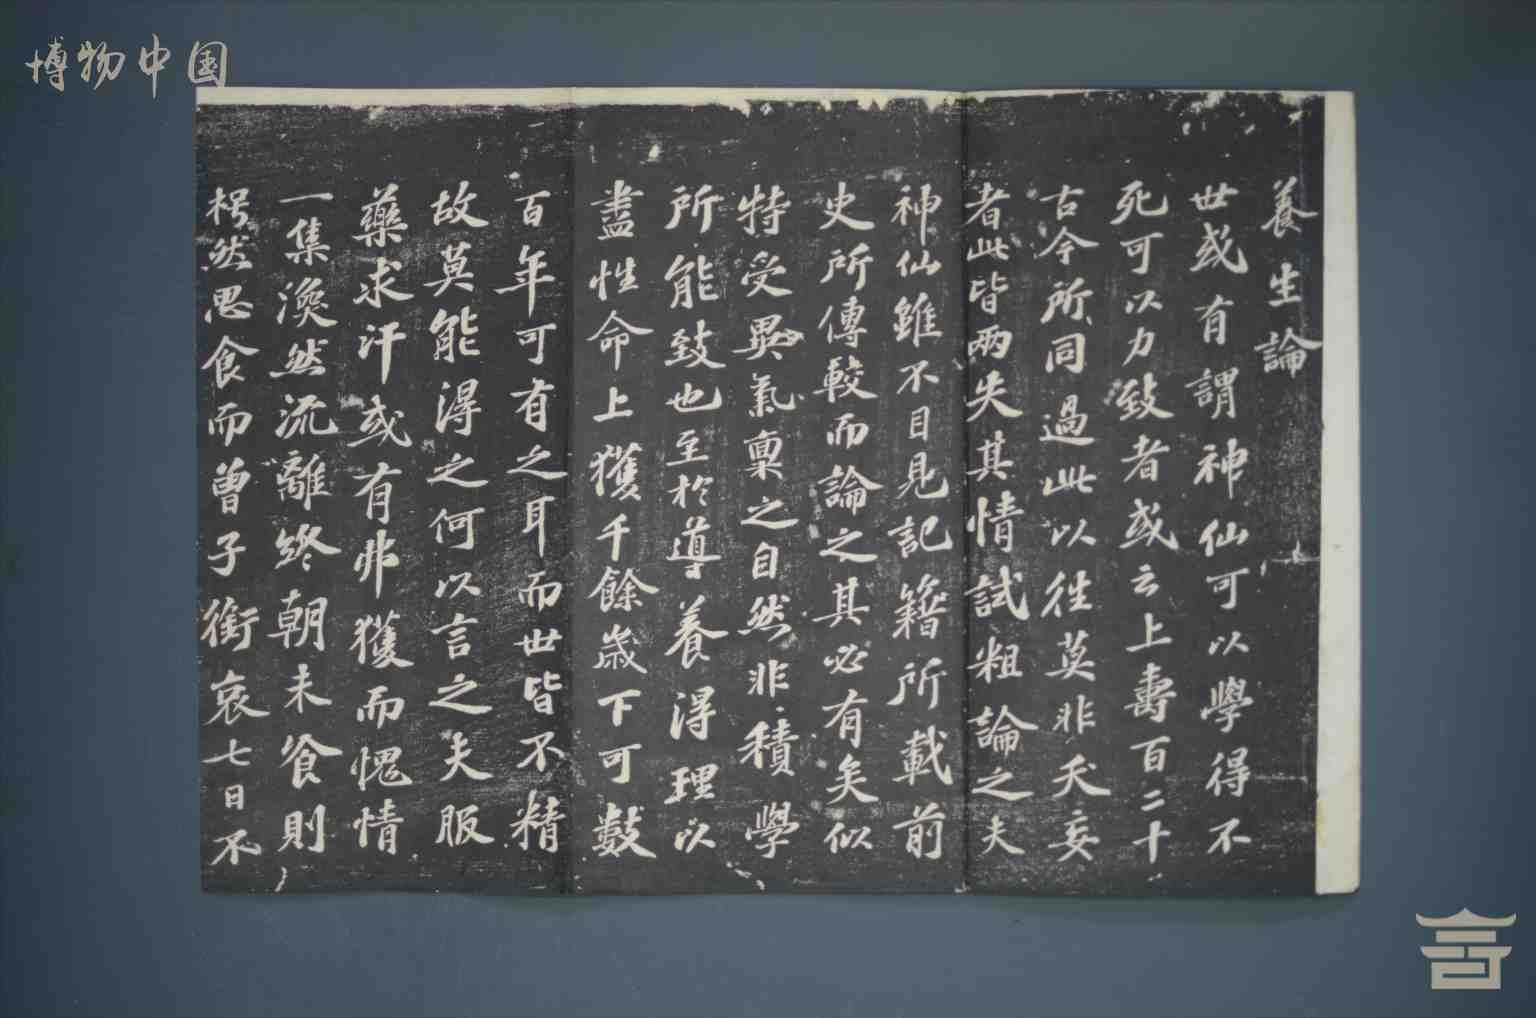 博物中国
養生論
世或有謂神仙可以學得不
死可以力致者或云上壽百二十
古今所同過此以往莫非夭妄
者此皆兩失其情試粗論之夫
神仙雖不目見記籍所載前
史所傳較而論之其必有矣似
特受異氣稟之自然非積學
所能致也至於導養得理以
盡性命上獲千餘歲下可數
百年可有之耳而世皆不精
故莫能得之何以言之夫服
藥求汗或有弗獲而愧情
一集渙然流離終朝未餐則
枵然思食而曾子銜哀七日不